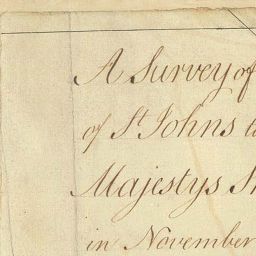 A Survey of
of St Johns
Majestys
in November